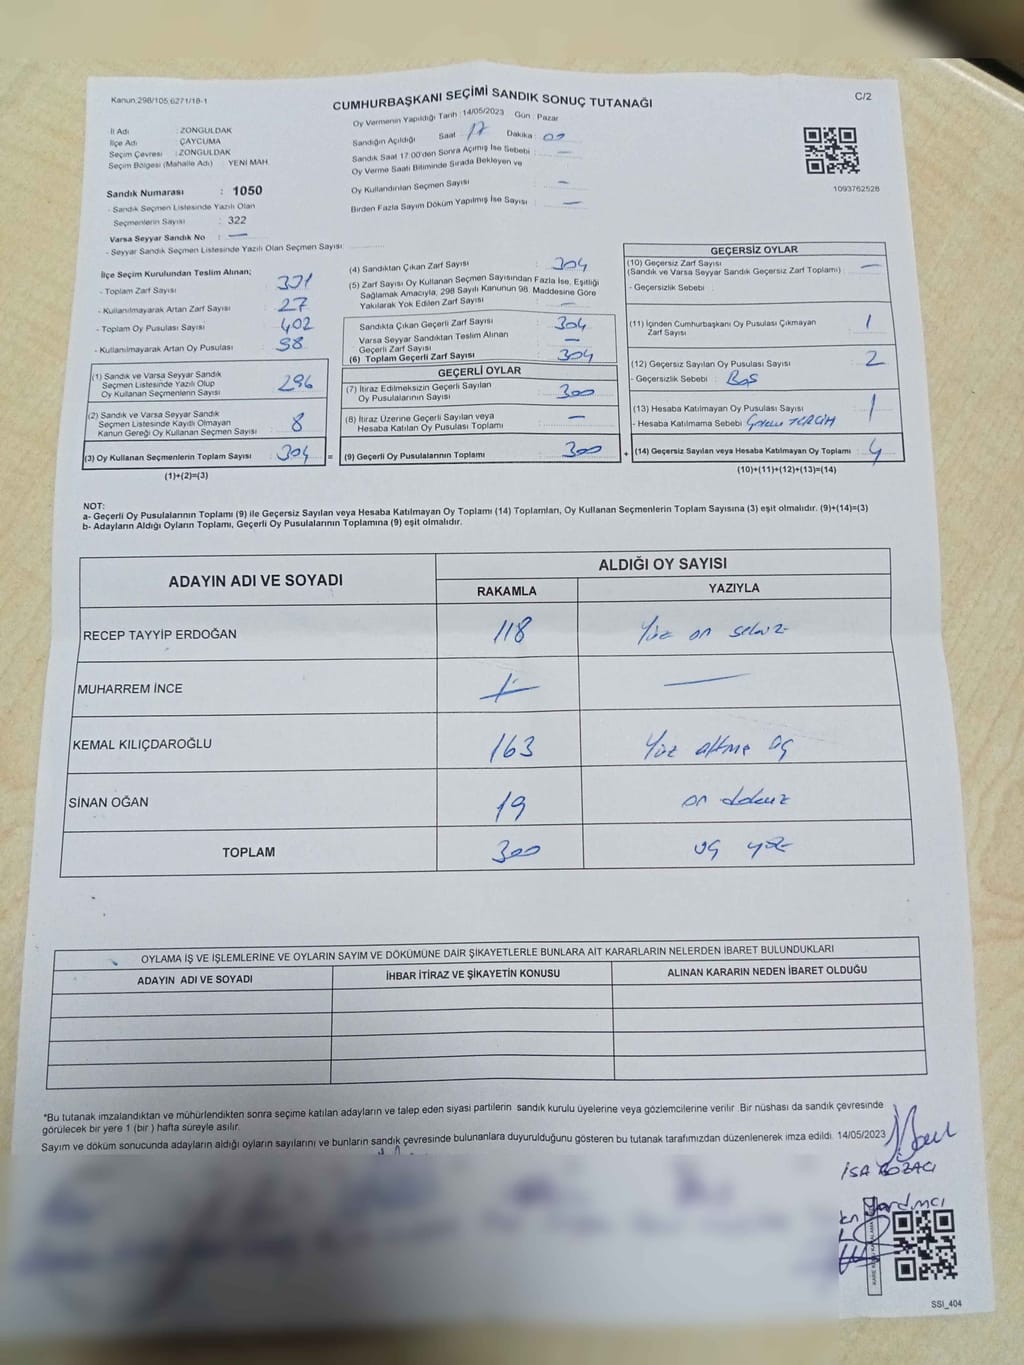 Kanun,298/105,6271/18-1
CUMHURBAŞKANI SEÇİMİ SANDIK SONUÇ TUTANAĞI
C/2
İl Adı : ZONGULDAK
İlçe Adı : ÇAYCUMA
Seçim Çevresi : ZONGULDAK
Seçim Bölgesi (Mahalle Adı) : YENİ MAH.
Oy Vermenin Yapıldığı Tarih :14/05/2023 Gün : Pazar
Sandığın Açıldığı Saat : 17 Dakika : 00
Sandık Saat 17:00'den Sonra Açılmış İse Sebebi : —
Oy Verme Saati Bitiminde Sırada Bekleyen ve
Oy Kullandırılan Seçmen Sayısı : —
Birden Fazla Sayım Döküm Yapılmış İse Sayısı : —
1093762528
Sandık Numarası : 1050
- Sandık Seçmen Listesinde Yazılı Olan
Seçmenlerin Sayısı : 322
Varsa Seyyar Sandık No : —
- Seyyar Sandık Seçmen Listesinde Yazılı Olan Seçmen Sayısı:
İlçe Seçim Kurulundan Teslim Alınan;
- Toplam Zarf Sayısı : 331
- Kullanılmayarak Artan Zarf Sayısı : 27
- Toplam Oy Pusulası Sayısı : 402
- Kullanılmayarak Artan Oy Pusulası : 98
(1) Sandık ve Varsa Seyyar Sandık
Seçmen Listesinde Yazılı Olup
Oy Kullanan Seçmenlerin Sayısı : 296
(2) Sandık ve Varsa Seyyar Sandık
Seçmen Listesinde Kayıtlı Olmayan
Kanun Gereği Oy Kullanan Seçmen Sayısı : 8
(3) Oy Kullanan Seçmenlerin Toplam Sayısı : 304 =
(1)+(2)=(3)
(4) Sandıktan Çıkan Zarf Sayısı : 304
(5) Zarf Sayısı Oy Kullanan Seçmen Sayısından Fazla İse, Eşitliği
Sağlamak Amacıyla, 298 Sayılı Kanunun 98. Maddesine Göre
Yakılarak Yok Edilen Zarf Sayısı : —
Sandıkta Çıkan Geçerli Zarf Sayısı : 304
Varsa Seyyar Sandıktan Teslim Alınan
Geçerli Zarf Sayısı : —
(6) Toplam Geçerli Zarf Sayısı : 304
GEÇERLİ OYLAR
(7) İtiraz Edilmeksizin Geçerli Sayılan
Oy Pusulalarının Sayısı : 300
(8) İtiraz Üzerine Geçerli Sayılan veya
Hesaba Katılan Oy Pusulası Toplamı : —
(9) Geçerli Oy Pusulalarının Toplamı : 300 +
GEÇERSİZ OYLAR
(10) Geçersiz Zarf Sayısı
(Sandık ve Varsa Seyyar Sandık Geçersiz Zarf Toplamı) : —
- Geçersizlik Sebebi :
(11) İçinden Cumhurbaşkanı Oy Pusulası Çıkmayan
Zarf Sayısı : 1
(12) Geçersiz Sayılan Oy Pusulası Sayısı : 2
- Geçersizlik Sebebi : Boş
(13) Hesaba Katılmayan Oy Pusulası Sayısı : 1
- Hesaba Katılmama Sebebi : TERCİH
(14) Geçersiz Sayılan veya Hesaba Katılmayan Oy Toplamı : 4
(10)+(11)+(12)+(13)=(14)
NOT:
a- Geçerli Oy Pusulalarının Toplamı (9) ile Geçersiz Sayılan veya Hesaba Katılmayan Oy Toplamı (14) Toplamları, Oy Kullanan Seçmenlerin Toplam Sayısına (3) eşit olmalıdır. (9)+(14)=(3)
b- Adayların Aldığı Oyların Toplamı, Geçerli Oy Pusulalarının Toplamına (9) eşit olmalıdır.
ADAYIN ADI VE SOYADI
ALDIĞI OY SAYISI
RAKAMLA YAZIYLA
RECEP TAYYİP ERDOĞAN 118 Yüz on sekiz
MUHARREM İNCE —
KEMAL KILIÇDAROĞLU 163 Yüz altmış üç
SİNAN OĞAN 19 on dokuz
TOPLAM 300 üç yüz
OYLAMA İŞ VE İŞLEMLERİNE VE OYLARIN SAYIM VE DÖKÜMÜNE DAİR ŞİKAYETLERLE BUNLARA AİT KARARLARIN NELERDEN İBARET BULUNDUKLARI
ADAYIN ADI VE SOYADI İHBAR İTİRAZ VE ŞİKAYETİN KONUSU ALINAN KARARIN NEDEN İBARET OLDUĞU
*Bu tutanak imzalandıktan ve mühürlendikten sonra seçime katılan adayların ve talep eden siyasi partilerin sandık kurulu üyelerine veya gözlemcilerine verilir. Bir nüshası da sandık çevresinde
görülecek bir yere 1 (bir) hafta süreyle asılır.
Sayım ve döküm sonucunda adayların aldığı oyların sayılarını ve bunların sandık çevresinde bulunanlara duyurulduğunu gösteren bu tutanak tarafımızdan düzenlenerek imza edildi. 14/05/2023
İSA BOZACI
SSI_404